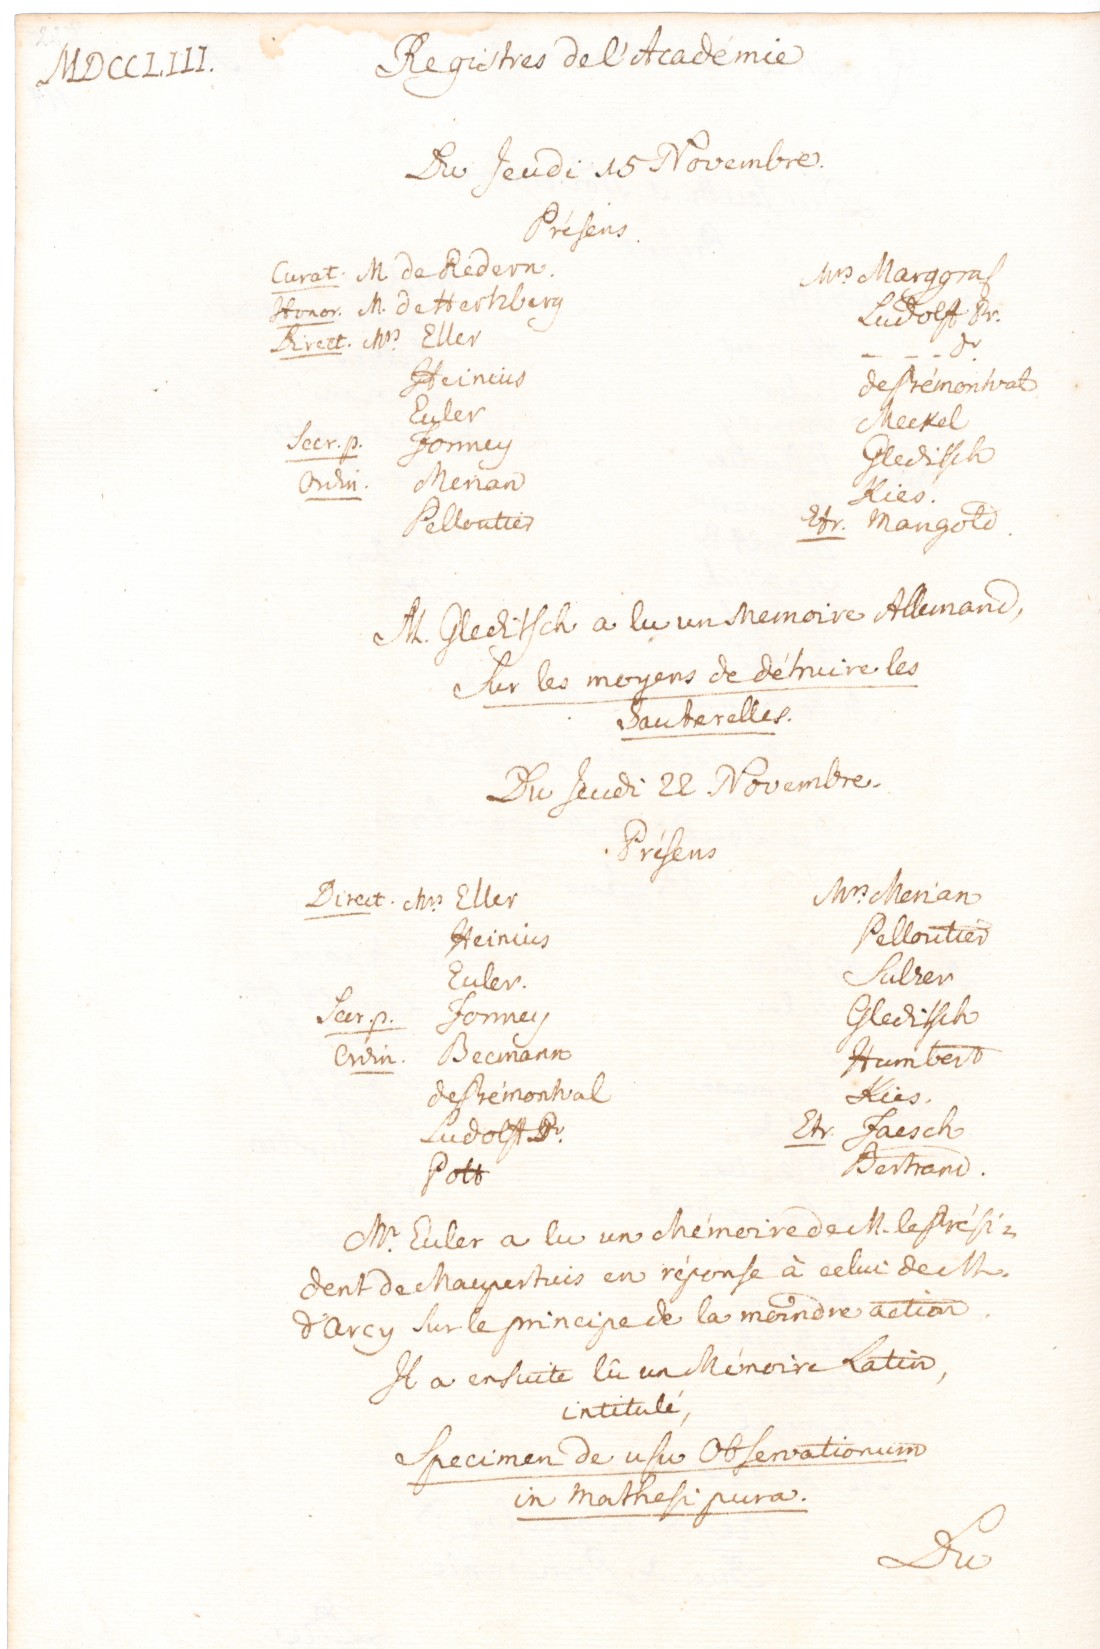 MDCCLIII.
Registres de l'Académie
Du Jeudi 15 Novembre.
Présens.
Curat. M. de Redern.
Honor. M. de Hertzberg
Direct. Mrs Eller
Heinius
Euler
Secr. p. Formey
Ordin. Merian
Pelloutier
Mrs Marggraf
Ludolff Pr.
_ _ _ dr
de Prémontval
Meckel
Gleditsch
Kies.
Etr. Mangold.
M. Gleditsch a lu un Memoire Allemand,
Sur les moyens de détruire les
Sauterelles.
Du Jeudi 22 Novembre.
Présens
Direct. Mrs Eller
Heinius
Euler.
Secr. p. Formey
Ordin. Becmann
de Prémontval
Ludolff Dr.
Pott
Mrs Merian
Pelloutier
Sulzer
Gleditsch
Humbert
Kies.
Etr. Jaesch
Bertrand.
Mr. Euler a lu un Mémoire de M. le Prési=
dent de Maupertuis en réponse à celui de M.
d'Arcy sur le principe de la moindre action.
Il a ensuite lû un Mémoire Latin,
intitulé,
Specimen de usu Observationum
in Mathesi pura.
Du